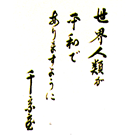 世界人類が
平和で
ありますように